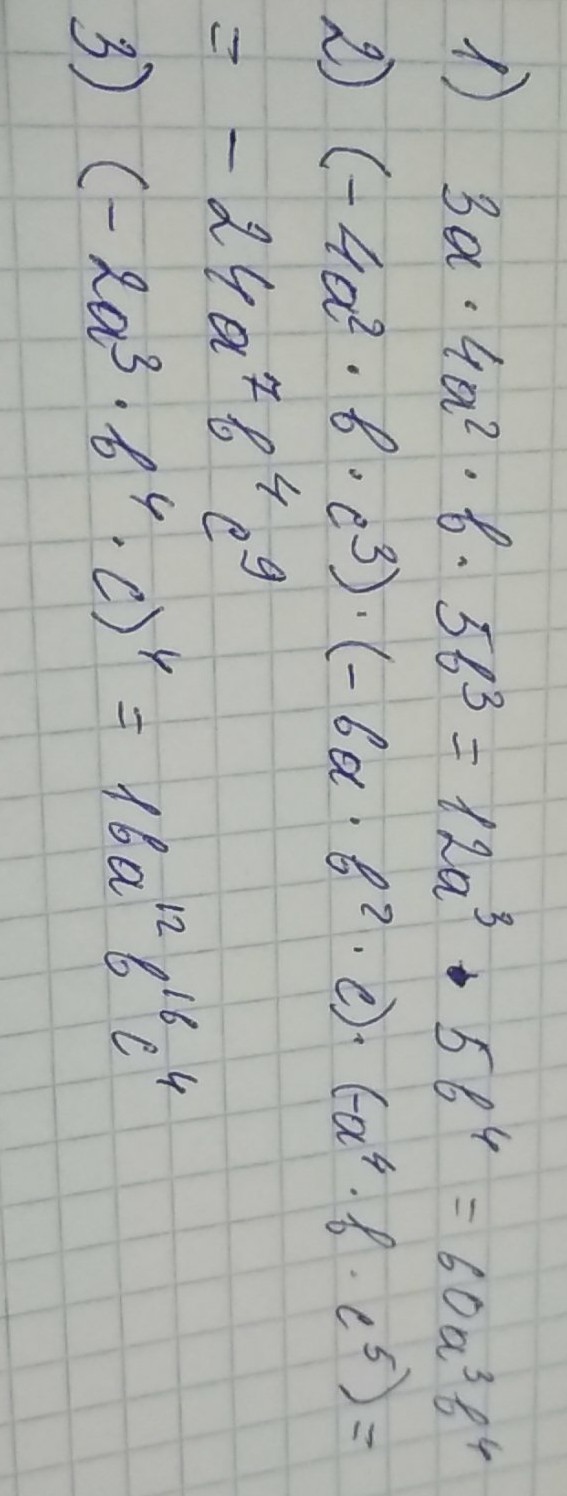 1) 3a · 4a² · b · 5b³ = 12a³ · 5b⁴ = 60a³b⁴
2) (- 4a² · b · c³) · (- 6a · b² · c) · (-a⁴ · b · c⁵) =
= - 24a⁷b⁴c⁹
3) (- 2a³ · b⁴ · c)⁴ = 16a¹²b¹⁶c⁴